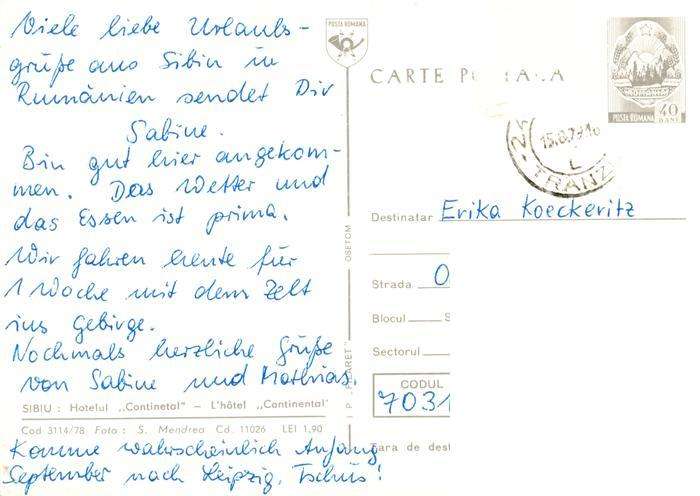 Viele liebe Urlaubs-
grüße aus Sibiu in
Rumänien sendet Dir
Sabine.
Bin gut hier angekom-
men. Das Wetter und
das Essen ist prima.
Wir fahren heute für
1 Woche mit dem Zelt
ins Gebirge.
Nochmals herzliche Grüße
von Sabine und Mathias.
SIBIU : Hotelul „Continetal" – L'hôtel „Continental"
Cod 3114/78 Foto : S. Mendrea Cd. 11026 LEI 1,90
Komme wahrscheinlich Anfang
September nach Leipzig. Tschüs!
POSTA ROMANA
OSETOM
CARTE POSTALA
POSTA ROMANA 40 BANI
TRANZ
Destinatar Erika Koeckeritz
Strada O
Blocul S
Sectorul
CODUL
7031
Tara de dest